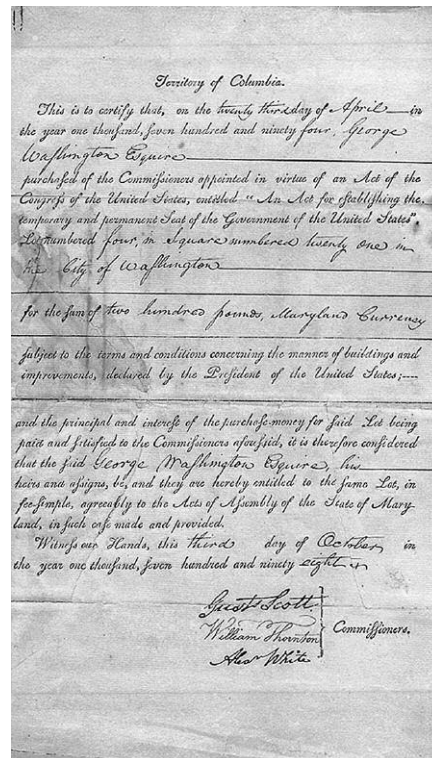 Territory of Columbia.
This is to certify that, on the twenty third day of April in
the year one thousand, seven hundred and ninety four, George
Washington Esquire
purchased of the Commissioners appointed in virtue of an Act of the
Congress of the United States, entitled "An Act for establishing the
temporary and permanent Seat of the Government of the United States",
Lot numbered four, in Square numbered twenty one in
the City of Washington
for the sum of two hundred pounds, Maryland Currency
subject to the terms and conditions concerning the manner of buildings and
improvements, declared by the President of the United States;
and the principal and interest of the purchase-money for said Lot being
paid and satisfied to the Commissioners aforesaid, it is therefore considered
that the said George Washington Esquire, his
heirs and assigns, be, and they are hereby entitled to the same Lot, in
fee-simple, agreeably to the Acts of Assembly of the State of Mary-
land, in such case made and provided.
Witness our Hands, this third day of October in
the year one thousand, seven hundred and ninety eight
Gust. Scott.
William Thornton
Commissioners.
Alexr White